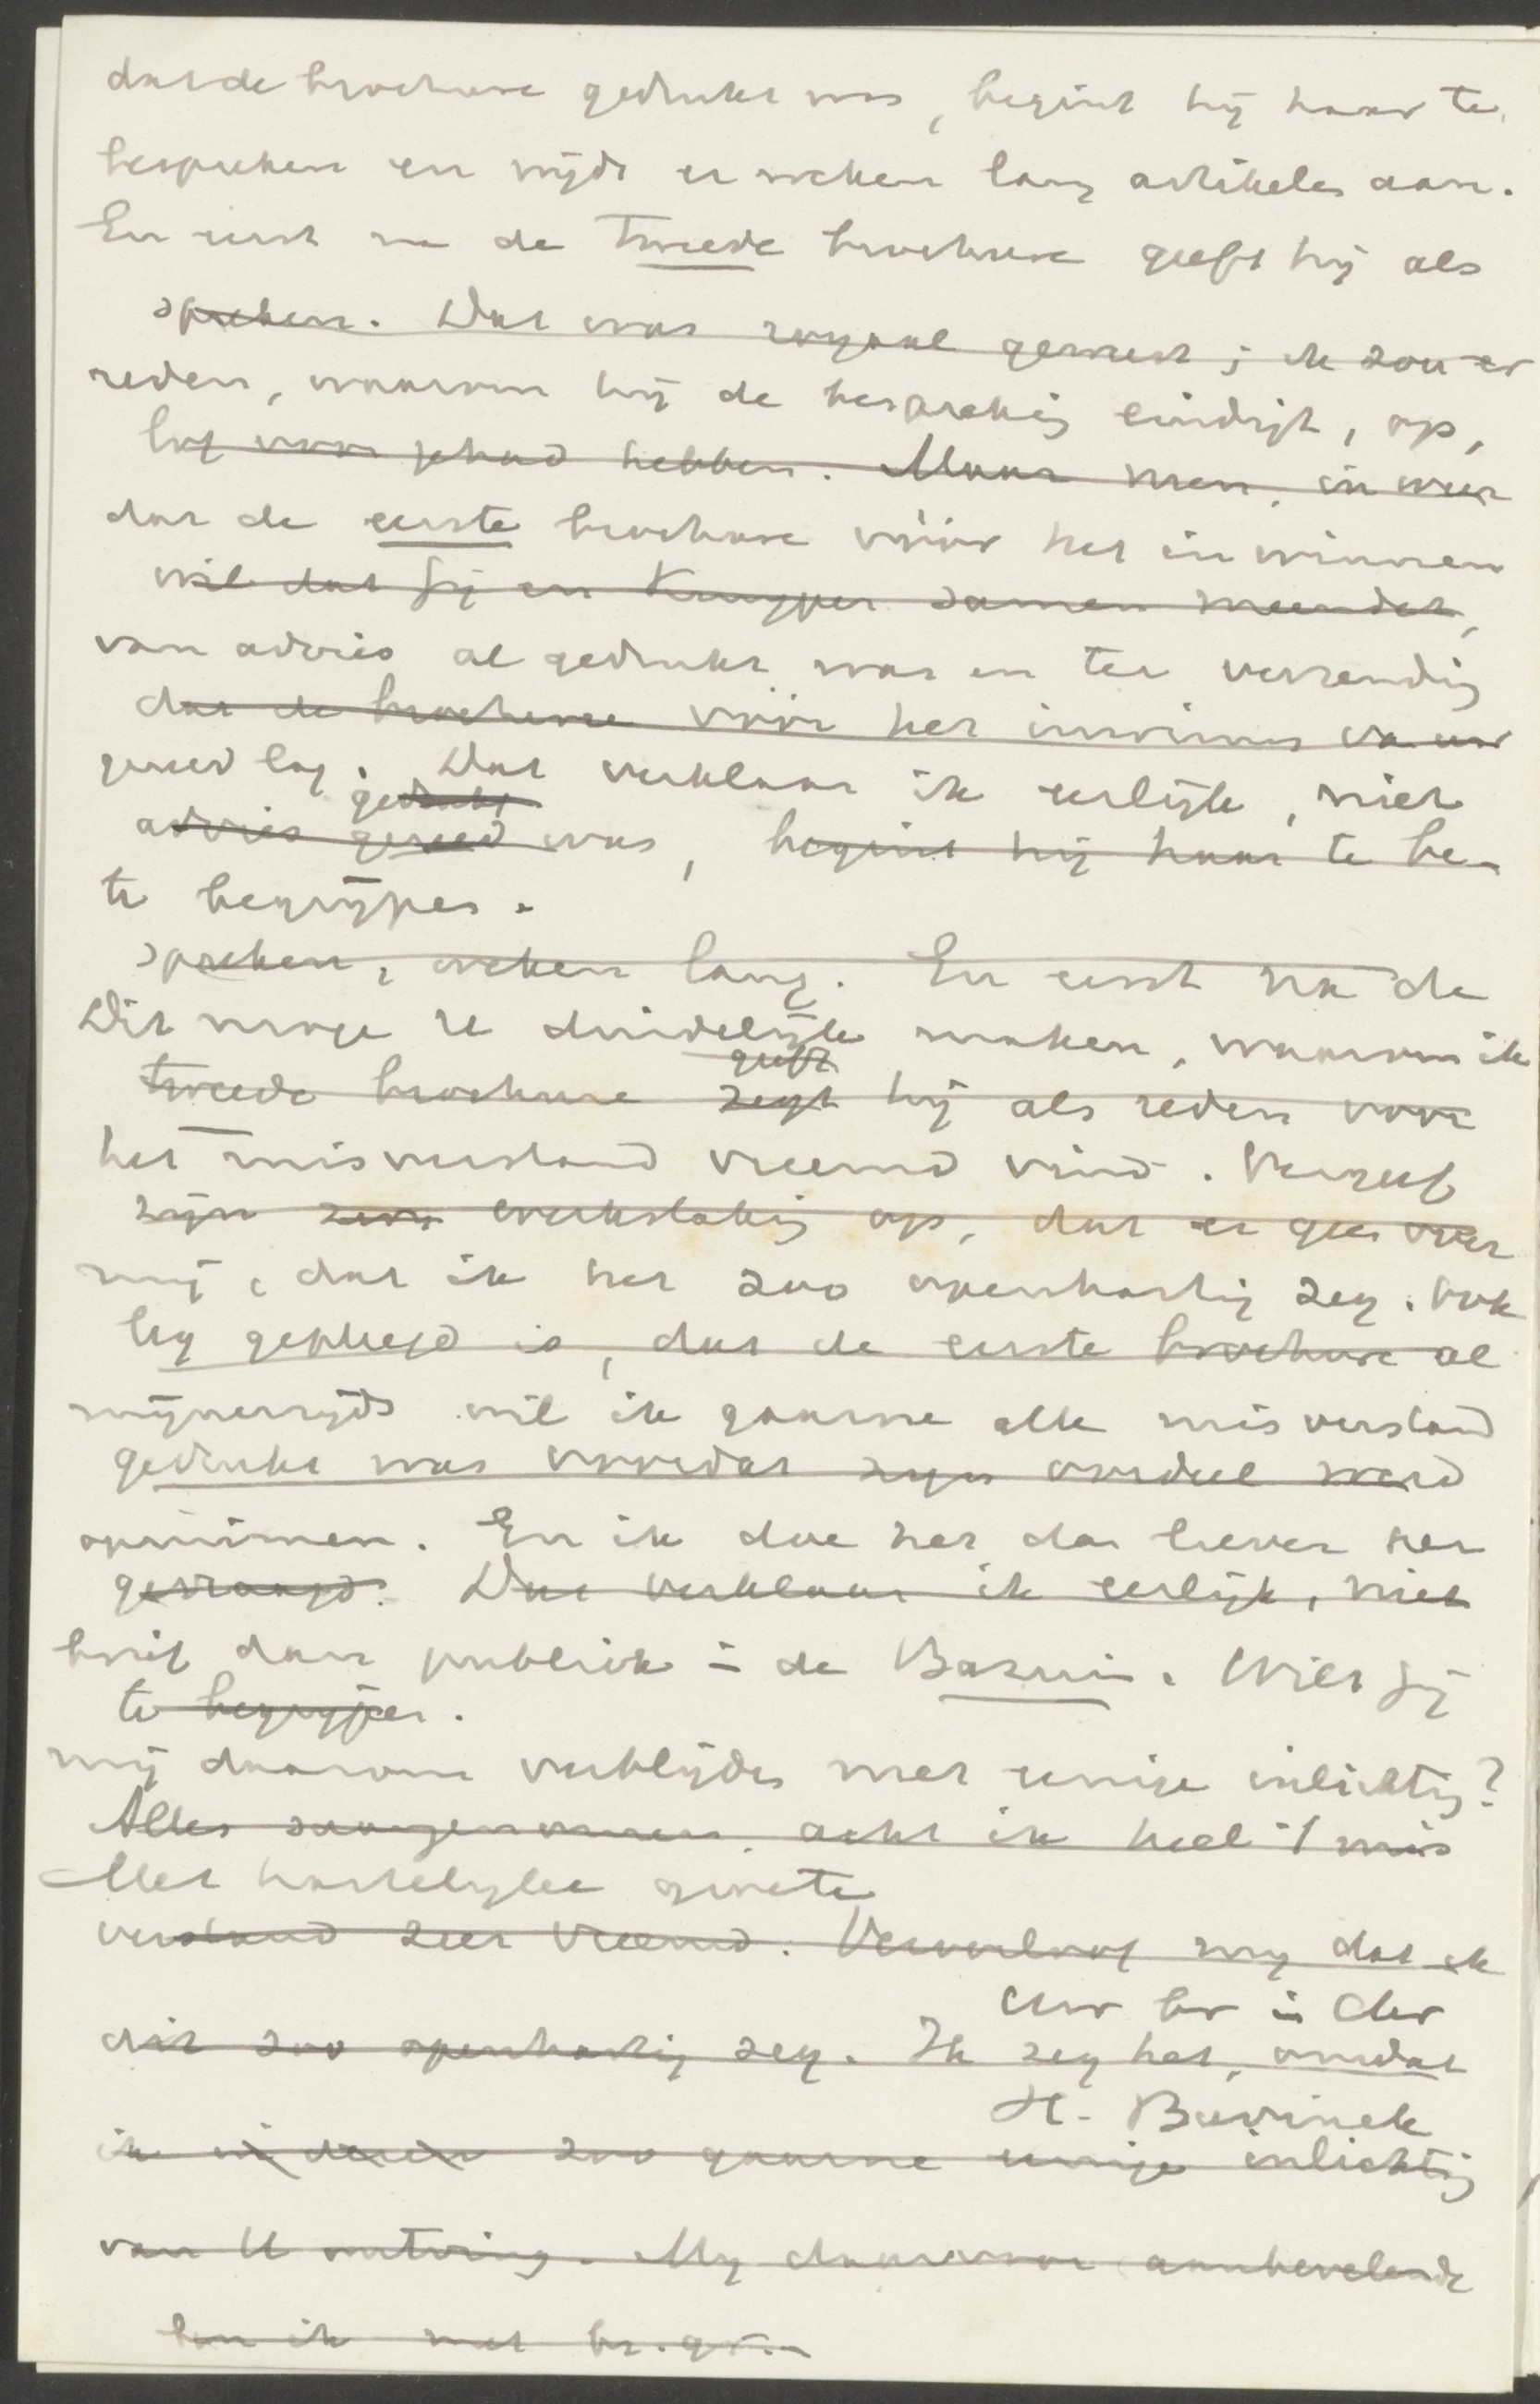 dat de brochure gedrukt was, begint hij haar te
bespreken en wijdt er weken lang artikelen aan.
En eerst na de tweede brochure geeft hij als
spreken. Dat was royaal geweest; ik zou er
reden, waarom hij de bespreking eindigt, op,
lof voor gehad hebben. Maar neen, in weer
dat de eerste brochure vóór het inwinnen
wil dat Gij en Kuyper samen meendet,
van advies al gedrukt was en ter verzending
dat de brochure vóór het inwinnen van uw
gereed lag. Dat verklaar ik eerlijk, niet
gedrukt
advies gereed was, begint hij haar te be-
te begrijpen.
spreken, weken lang. En eerst na de
Dit moge U duidelijk maken, waarom ik
geeft
tweede brochure zegt hij als reden voor
het misverstand vreemd vind. Vergeef
zijn werkstaking op, dat er geen
mij, dat ik het zoo openhartig zeg. Ook
gepleegd is, dat de eerste brochure al
mijnerzijds wil ik gaarne elk misverstand
gedrukt was voordat zijn oordeel werd
opruimen. En ik doe het dan liever per
gevraagd. Dat verklaar ik eerlijk, niet
brief dan publiek in de Bazuin. Wilt Gij
te begrijpen.
mij daarom verblijden met eenige inlichting?
Alles saamgenomen acht ik heel 't mis
Met hartelijke groete
verstand zeer vreemd. Veroorloof mij dat ik
Uw br in Chr
dit zoo openhartig zeg. Ik zeg het, omdat
H. Bavinck
ik zoo gaarne eenige inlichting
van U ontving. Mij daarvoor aanbevelende
ben ik met br. gr.-